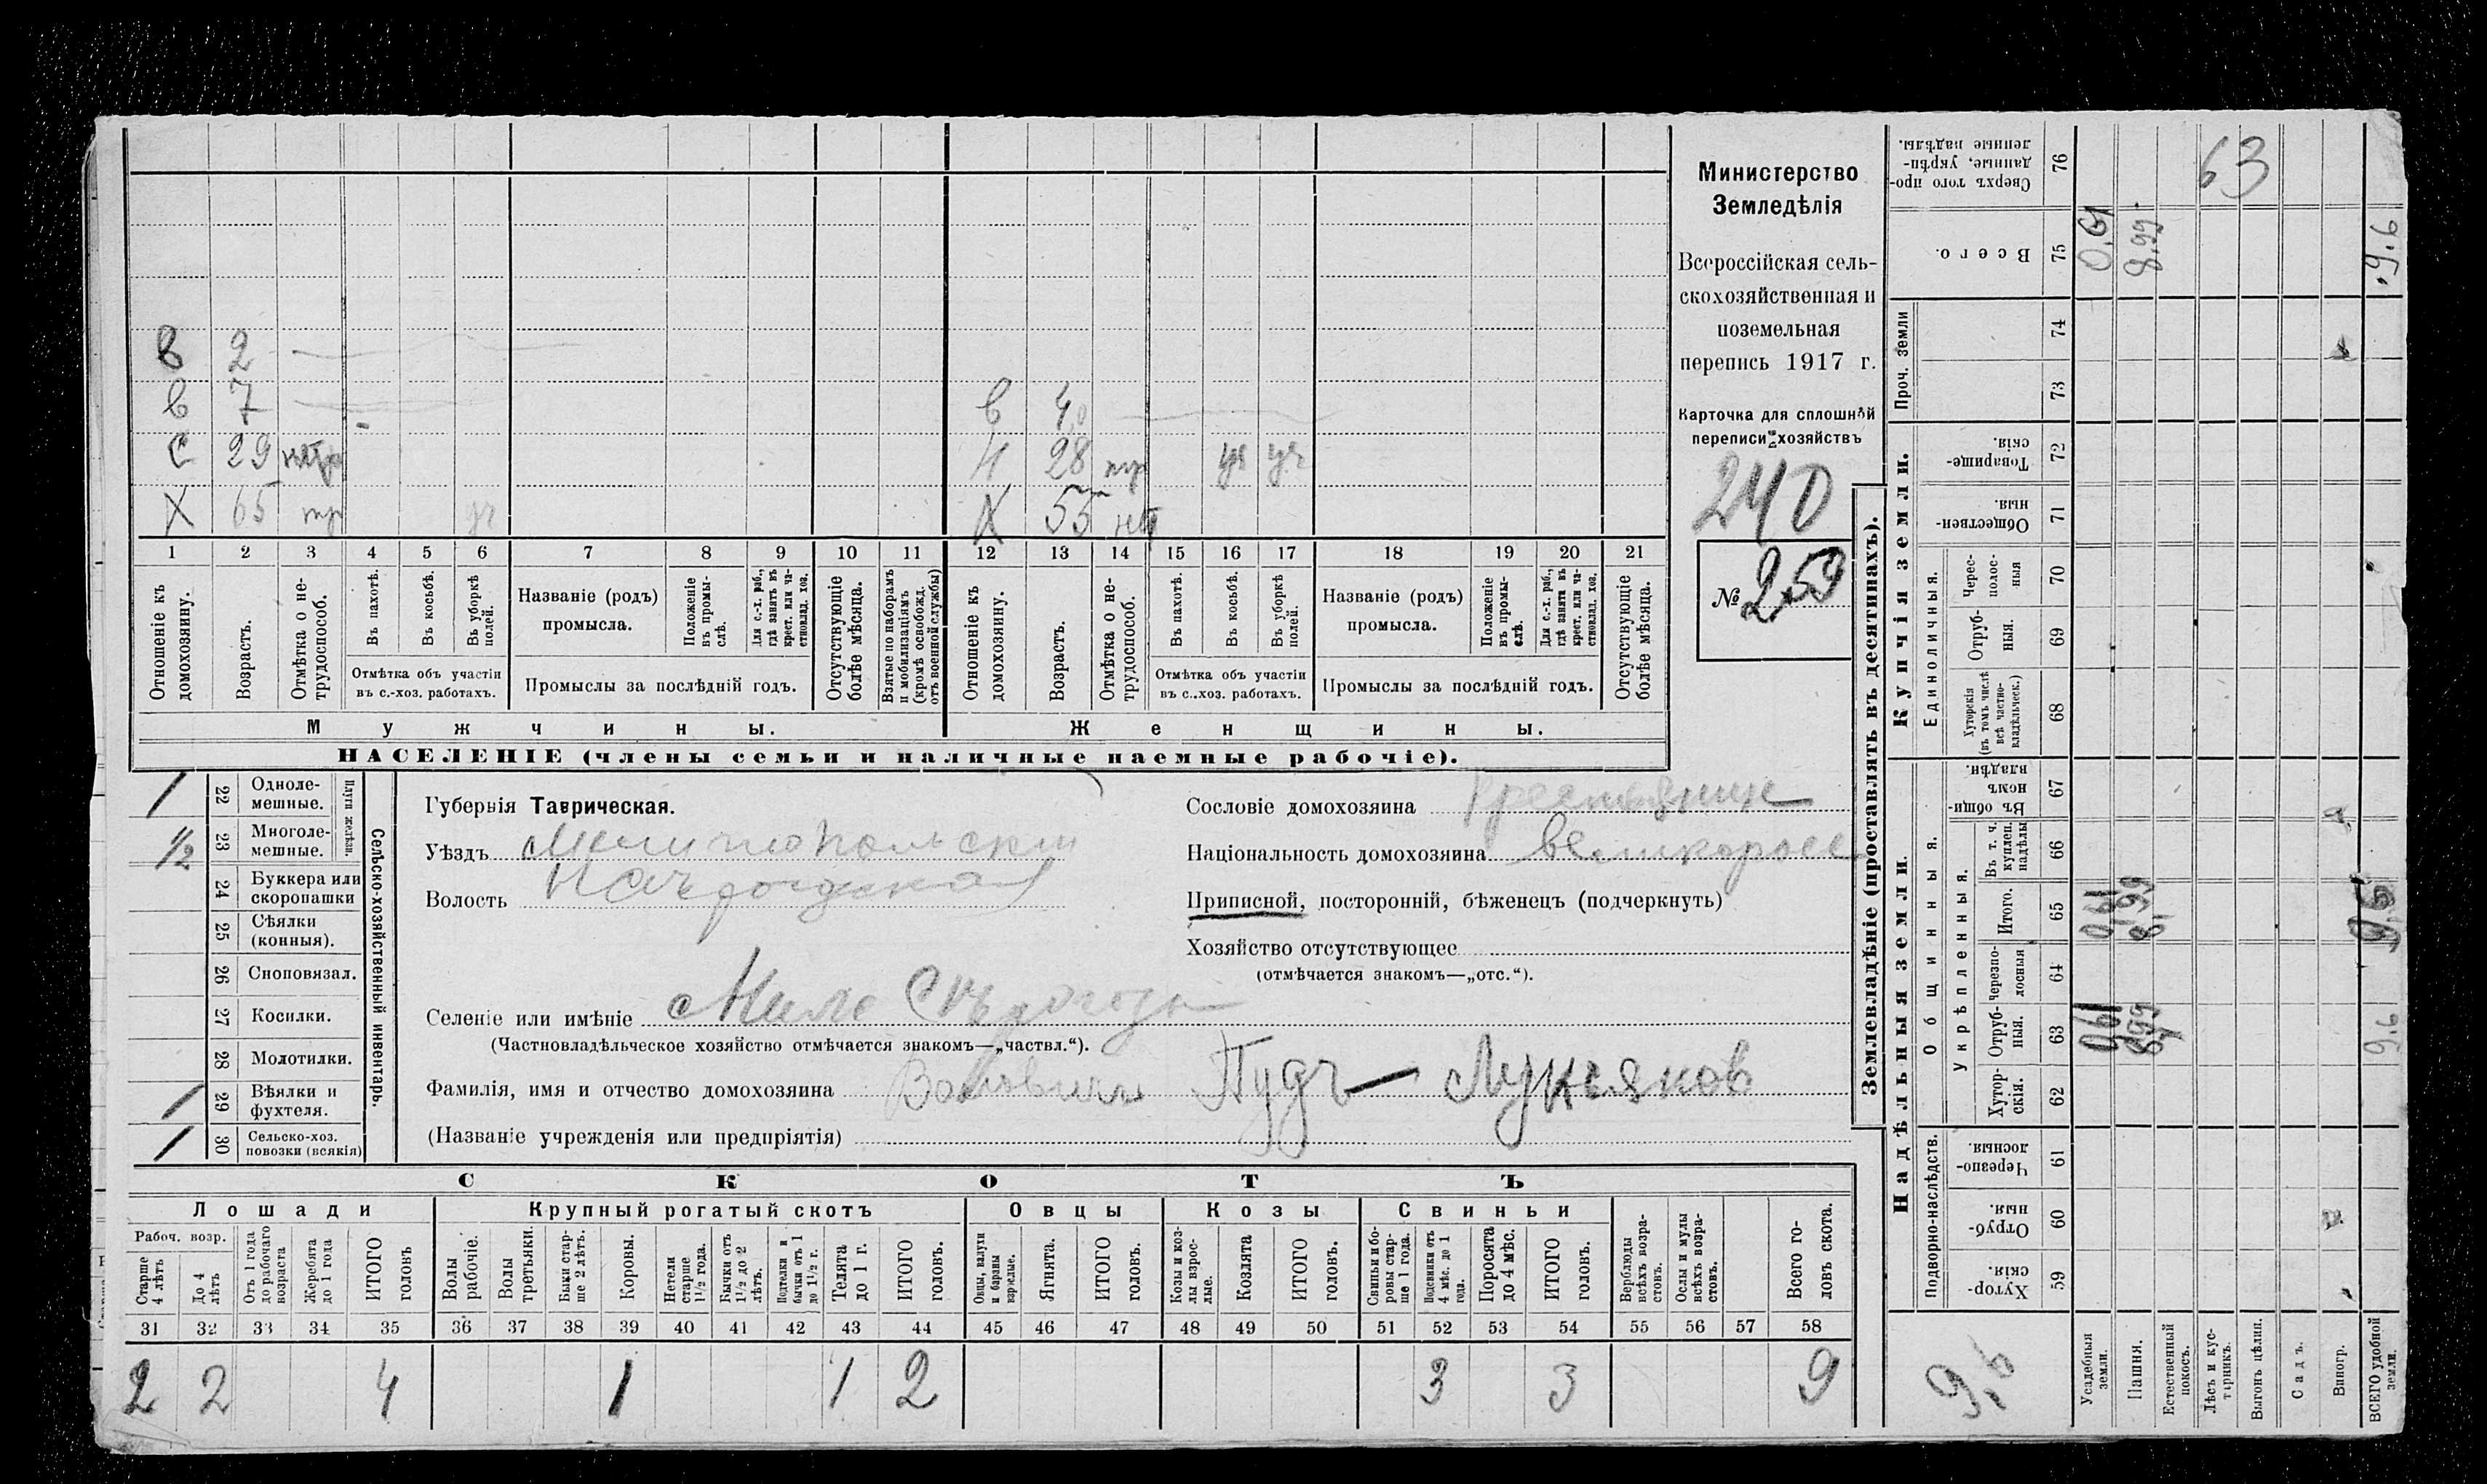 в 2
в 7 в 4
с 29 28 тр уч уч
Х 65 тр уч Х 55 нт
1 2 3 4 5 6 7 8 9 10 11 12 13 14 15 16 17 18 19 20 21
Отношеніе къ домохозяину.
Возрастъ.
Отмѣтка о не-трудоспособ.
Въ пахотѣ.
Въ косьбѣ.
Въ уборкѣ полей.
Отмѣтка объ участіи въ с.-хоз. работахъ.
Названіе (родъ) промысла.
Положеніе въ промы-слѣ.
Для с.-х. раб., гдѣ занятъ въ крест. или ча-стновлад. хоз.
Промыслы за послѣдній годъ.
Отсутствующіе болѣе мѣсяца.
Взятые по наборамъ и мобилизаціямъ (кромѣ освобожд. отъ военной службы)
Отношеніе къ домохозяину.
Возрастъ.
Отмѣтка о не-трудоспособ.
Въ пахотѣ.
Въ косьбѣ.
Въ уборкѣ полей.
Отмѣтка объ участіи въ с..хоз. работахъ.
Названіе (родъ) промысла.
Положеніе въ промы-слѣ.
Для с.-х. раб., гдѣ занята въ крест. или ча-стновлад. хоз.
Промыслы за послѣдній годъ.
Отсутствующіе болѣе мѣсяца.
Мужчины. Женщины.
НАСЕЛЕНІЕ (члены семьи и наличные наемные рабочіе).
Министерство
Земледѣлія
Всероссійская сель-
скохозяйственная и
поземельная
перепись 1917 г.
Карточка для сплошной
переписи хозяйствъ
240
№ 259
1 22 Одноле-мешные.
1/2 23 Многоле-мешные.
Плуги желѣзн.
24 Буккера или скоропашки
25 Сѣялки (конныя).
26 Сноповязал.
27 Косилки.
28 Молотилки.
1 29 Вѣялки и фухтеля.
1 30 Сельско-хоз. повозки (всякія)
Сельско-хозяйственный инвентарь.
Губернія Таврическая.
Уѣздъ Мелитопольскій
Волость
Селеніе или имѣніе
(Частновладѣльческое хозяйство отмѣчается знакомъ—„частвл.“).
Фамилія, имя и отчество домохозяина Пудъ— Лукьяновъ
(Названіе учрежденія или предпріятія)
Сословіе домохозяина
Національность домохозяина великоросс
Приписной, посторонній, бѣженецъ (подчеркнуть)
Хозяйство отсутствующее
(отмѣчается знакомъ—„отс.“).
СКОТЪ
Лошади Крупный рогатый скотъ Овцы Козы Свиньи
Рабоч. возр.
Старше 4 лѣтъ
До 4 лѣтъ
Отъ 1 года до рабочаго возраста
Жеребята до 1 года
ИТОГО головъ
Волы рабочіе.
Волы третьяки.
Быки стар-ше 2 лѣтъ.
Коровы.
Нетели старше 1½ года.
Бычки отъ 1½ до 2 лѣтъ.
Подтелки и бычки отъ 1 до 1½ г.
Телята до 1 г.
ИТОГО головъ.
Овцы, валухи и бараны взрослые.
Ягнята.
ИТОГО головъ.
Козы и коз-лы взрос-лые.
Козлята
ИТОГО головъ.
Свиньи и бо-ровы стар-ше 1 года.
Подсвинки отъ 4 мѣс. до 1 года.
Поросята до 4 мѣс.
ИТОГО головъ.
Верблюды всѣхъ возра-стовъ.
Ослы и мулы всѣхъ возра-стовъ.
Всего го-ловъ скота.
31 32 33 34 35 36 37 38 39 40 41 42 43 44 45 46 47 48 49 50 51 52 53 54 55 56 57 58
2 2 4 1 1 2 3 3 9
Землевладѣніе (проставлять въ десятинахъ).
Надѣльныя земли. Купчія земли. Проч. земли
Подворно-наслѣдств. Общинныя. Укрѣпленныя. Единоличныя.
Хутор-скія. 59
Отруб-ныя. 60
Черезпо-лосныя 61
Хутор-скія. 62
Отруб-ныя. 63
Черезпо-лосныя 64
Итого. 65
Въ т. ч. куплен. надѣлы 66
Въ общи-номъ владѣн. 67
Хуторскія (въ томъ числѣ всѣ частно-владѣльческ.) 68
Отруб-ныя. 69
Черес-полос-ныя 70
Обществен-ныя. 71
Товарище-скія. 72
73
74
Всего. 75
Сверхъ того про-данные, укрѣп-ленные надѣлы. 76
Усадебныя земли. 0,61 0,61 0,61
Пашня. 8,99 8,99 8,99
Естественный покосъ.
Лѣсъ и кус-тарникъ.
Выгонъ цѣлин.
Садъ.
Виногр.
ВСЕГО удобной земли. 9.6 9,6 9.6
63
9,6